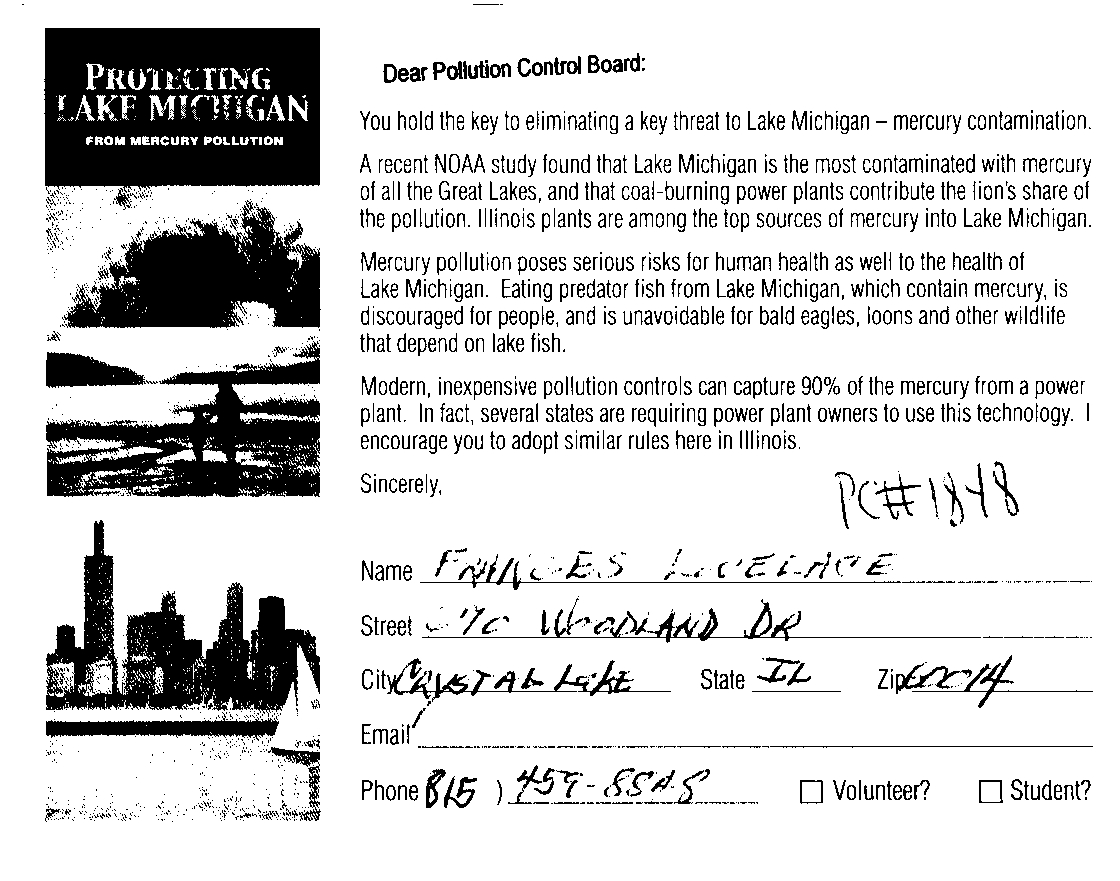 PROTECTING
LAKE MICHIGAN
FROM MERCURY POLLUTION
Dear Pollution Control Board:
You hold the key to eliminating a key threat to Lake Michigan – mercury contamination.
A recent NOAA study found that Lake Michigan is the most contaminated with mercury
of all the Great Lakes, and that coal-burning power plants contribute the lion's share of
the pollution. Illinois plants are among the top sources of mercury into Lake Michigan.
Mercury pollution poses serious risks for human health as well to the health of
Lake Michigan. Eating predator fish from Lake Michigan, which contain mercury, is
discouraged for people, and is unavoidable for bald eagles, loons and other wildlife
that depend on lake fish.
Modern, inexpensive pollution controls can capture 90% of the mercury from a power
plant. In fact, several states are requiring power plant owners to use this technology. I
encourage you to adopt similar rules here in Illinois.
Sincerely,
PC#1848
Name FRANCES LOVELACE
Street WOODLAND DR
City CRYSTAL LAKE State IL Zip 60014
Email
Phone 815 )
Volunteer? Student?